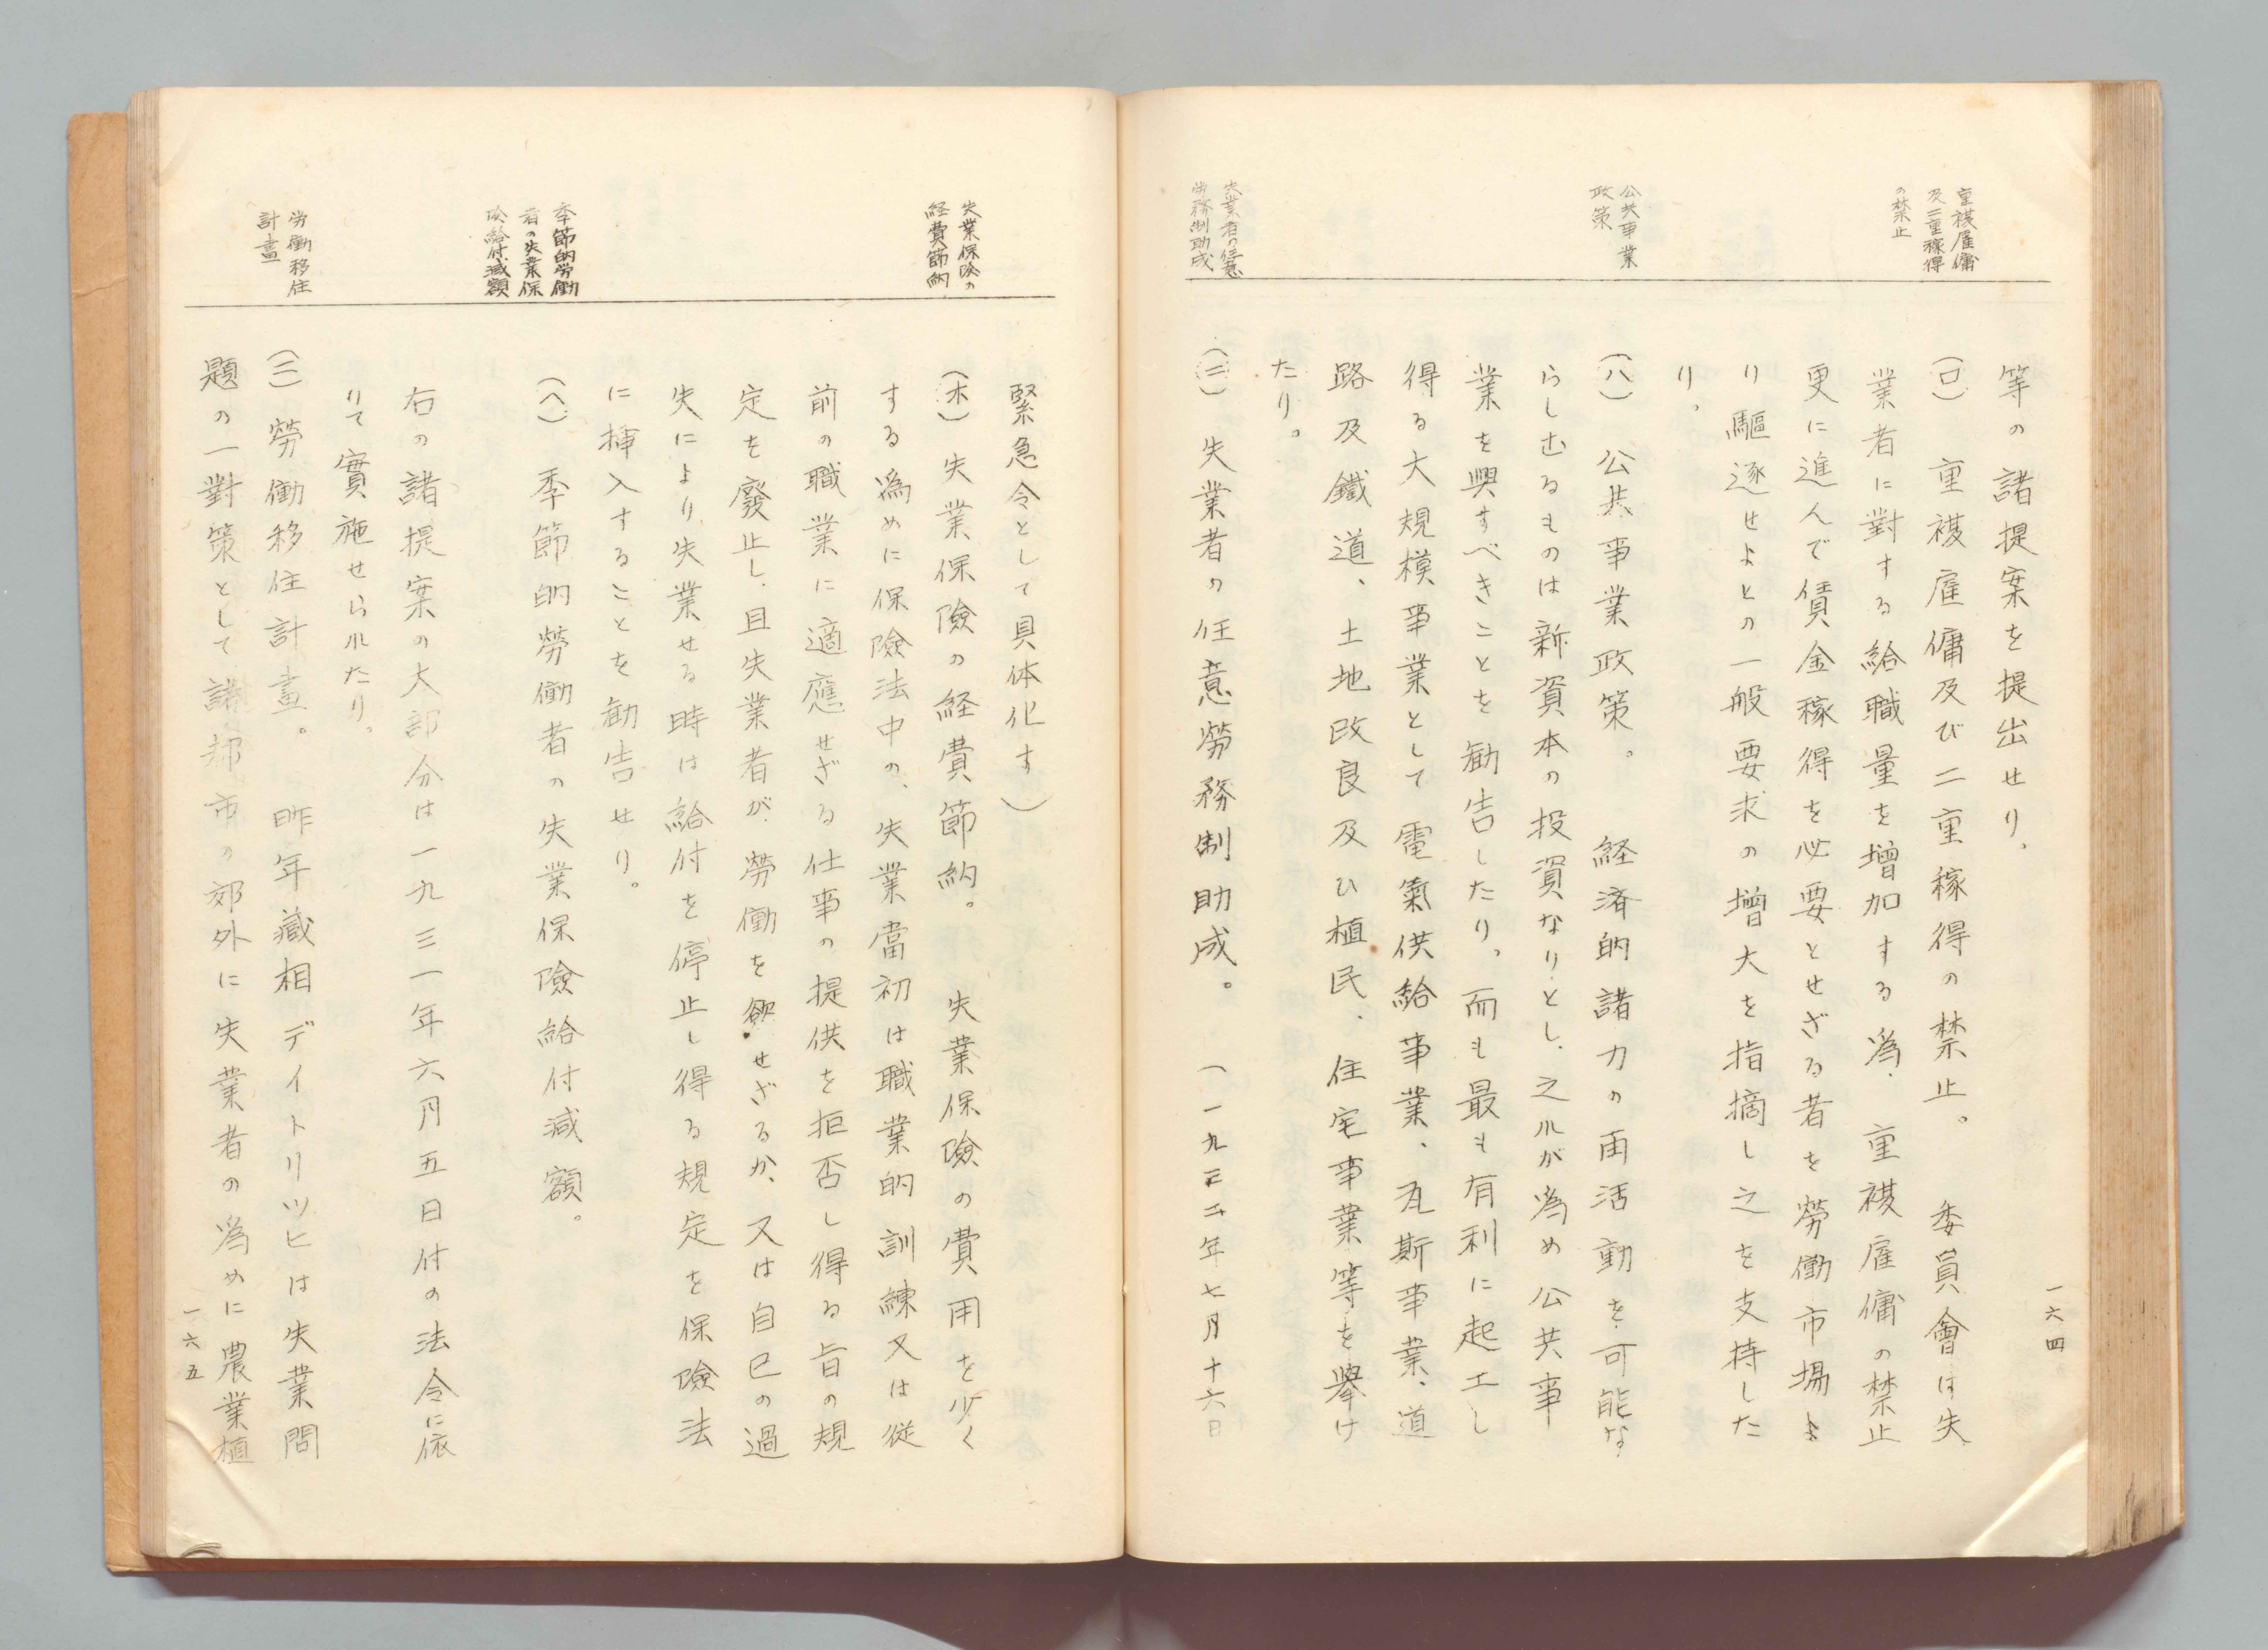 重複雇傭
及二重稼得
の禁止
公共事業
政策
失業者の任意
労務制助成
等の諸提案を提出せり、
(ロ) 重複雇傭及び二重稼得の禁止。 委員會は失
業者に對する給職量を増加する為、重複雇傭の禁止
更に進んで賃金稼得を必要とせざる者を勞働市場よ
り驅逐せよとの一般要求の増大を指摘し之を支持した
り。
(ハ) 公共事業政策。 経済的諸力の再活動を可能な
らしむるものは新資本の投資なりとし、之れが為め公共事
業を興すべきことを勧告したり。而も最も有利に起工し
得る大規模事業として電氣供給事業、瓦斯事業、道
路及鐵道、土地改良及ひ植民、住宅事業等を擧け
たり。
(ニ) 失業者の任意勞務制助成。 (一九三二年七月十六日
一六四
失業保険の
経費節約
季節的労働
者の失業保
険給付減額
労働移住
計畫
緊急令として具体化す)
(ホ) 失業保險の経費節約。 失業保險の費用を少く
する為めに保險法中の、失業當初は職業的訓練又は從
前の職業に適應せざる仕事の提供を拒否し得る旨の規
定を廢止し、且失業者が勞働を欲せざるか、又は自己の過
失により失業せる時は給付を停止し得る規定を保險法
に挿入することを勧告せり。
(ヘ) 季節的勞働者の失業保險給付減額。
右の諸提案の大部分は一九三一年六月五日付の法令に依
りて實施せられたり。
(三) 勞働移住計畫。 昨年藏相デイトリツヒは失業問
題の一對策として諸都市の郊外に失業者の為めに農業植
一六五